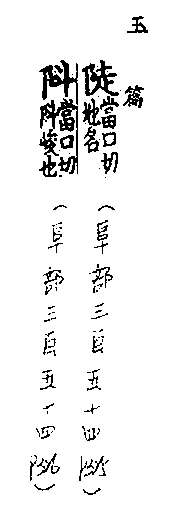 玉篇
陡當口切地名(阜部三百五十四
阧當口切阧峻也(阜部三百五十四